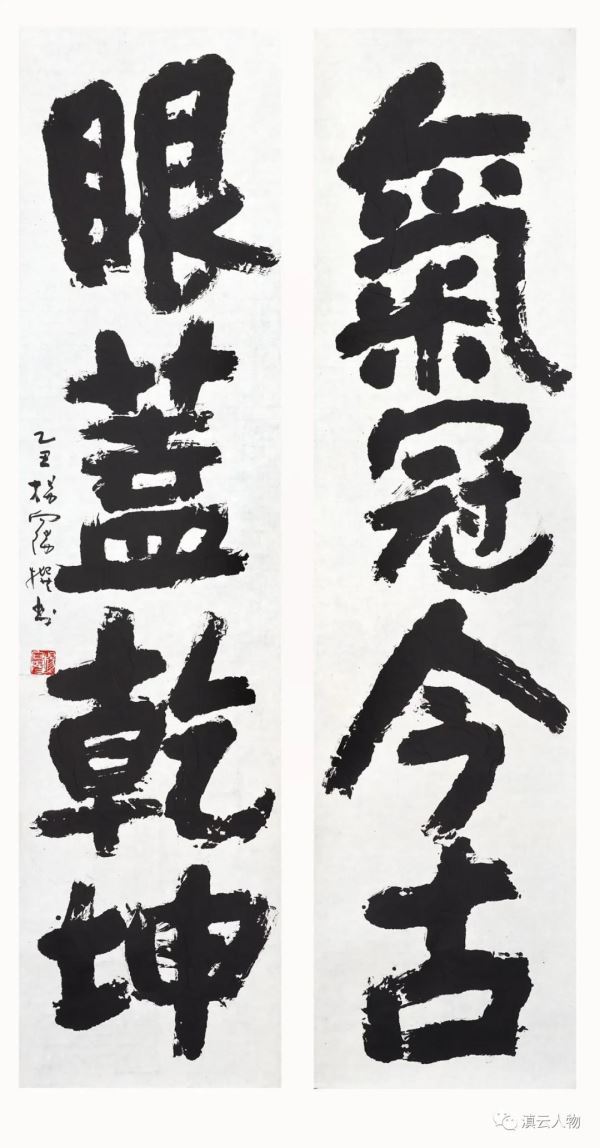 氣冠今古
眼蓋乾坤
乙丑楊撰书
滇云人物